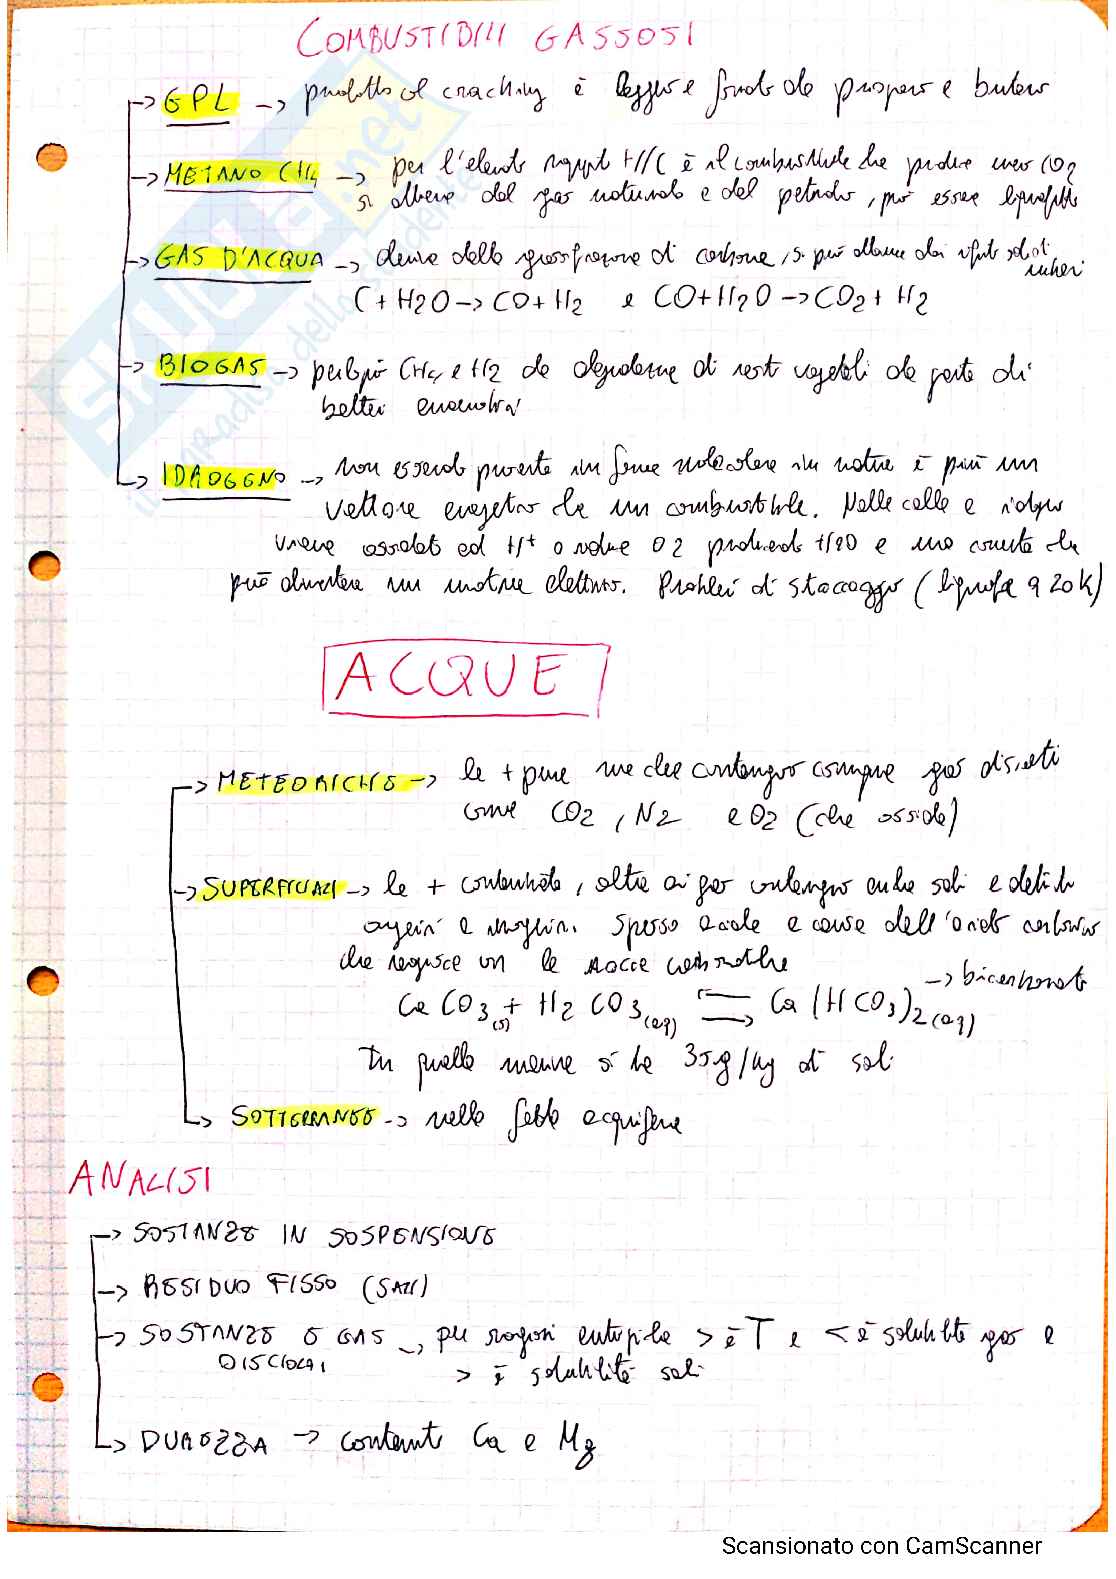 COMBUSTIBILI GASSOSI
-> GPL -> prodotto al cracking è leggero e formato da propano e butano
-> METANO CH4 -> per l'elevato rapporto H/C è il combustibile che produce meno CO2
si ottiene dal gas naturale e dal petrolio, può essere liquefatto
-> GAS D'ACQUA -> deriva dalla gassificazione di carbone, si può ottenere dai rifiuti solidi
urbani
C + H2O -> CO + H2 e CO + H2O -> CO2 + H2
-> BIOGAS -> perlopiù CH4 e H2 da degradazione di resti vegetali da parte di
batteri anaerobi
-> IDROGENO -> non essendo presente in forma molecolare in natura è più un
vettore energetico che un combustibile. Nelle celle a idrogeno
viene ossidato ad H+ e riduce O2 producendo H2O e una corrente che
può alimentare un motore elettrico. Problemi di stoccaggio (liquefa a 20K)
ACQUE
-> METEORICHE -> le + pure anche contengono comunque gas disciolti
come CO2, N2 e O2 (che ossida)
-> SUPERFICIALI -> le + contaminate, oltre ai gas contengono anche sali e detriti
organici e inorganici. Spesso acide a causa dell'acido carbonico
che reagisce con le rocce carbonatiche
CaCO3(s) + H2CO3(aq) ⇌ Ca(HCO3)2(aq) -> bicarbonato
In quelle marine si ha 35g/kg di sali
-> SOTTERRANEE -> nelle falde acquifere
ANALISI
-> SOSTANZE IN SOSPENSIONE
-> RESIDUO FISSO (SALI)
-> SOSTANZE E GAS -> per ragioni entropiche > è T e < è solubilità gas e
DISCIOLTI > è solubilità sali
-> DUREZZA -> contenuto Ca e Mg
Scansionato con CamScanner